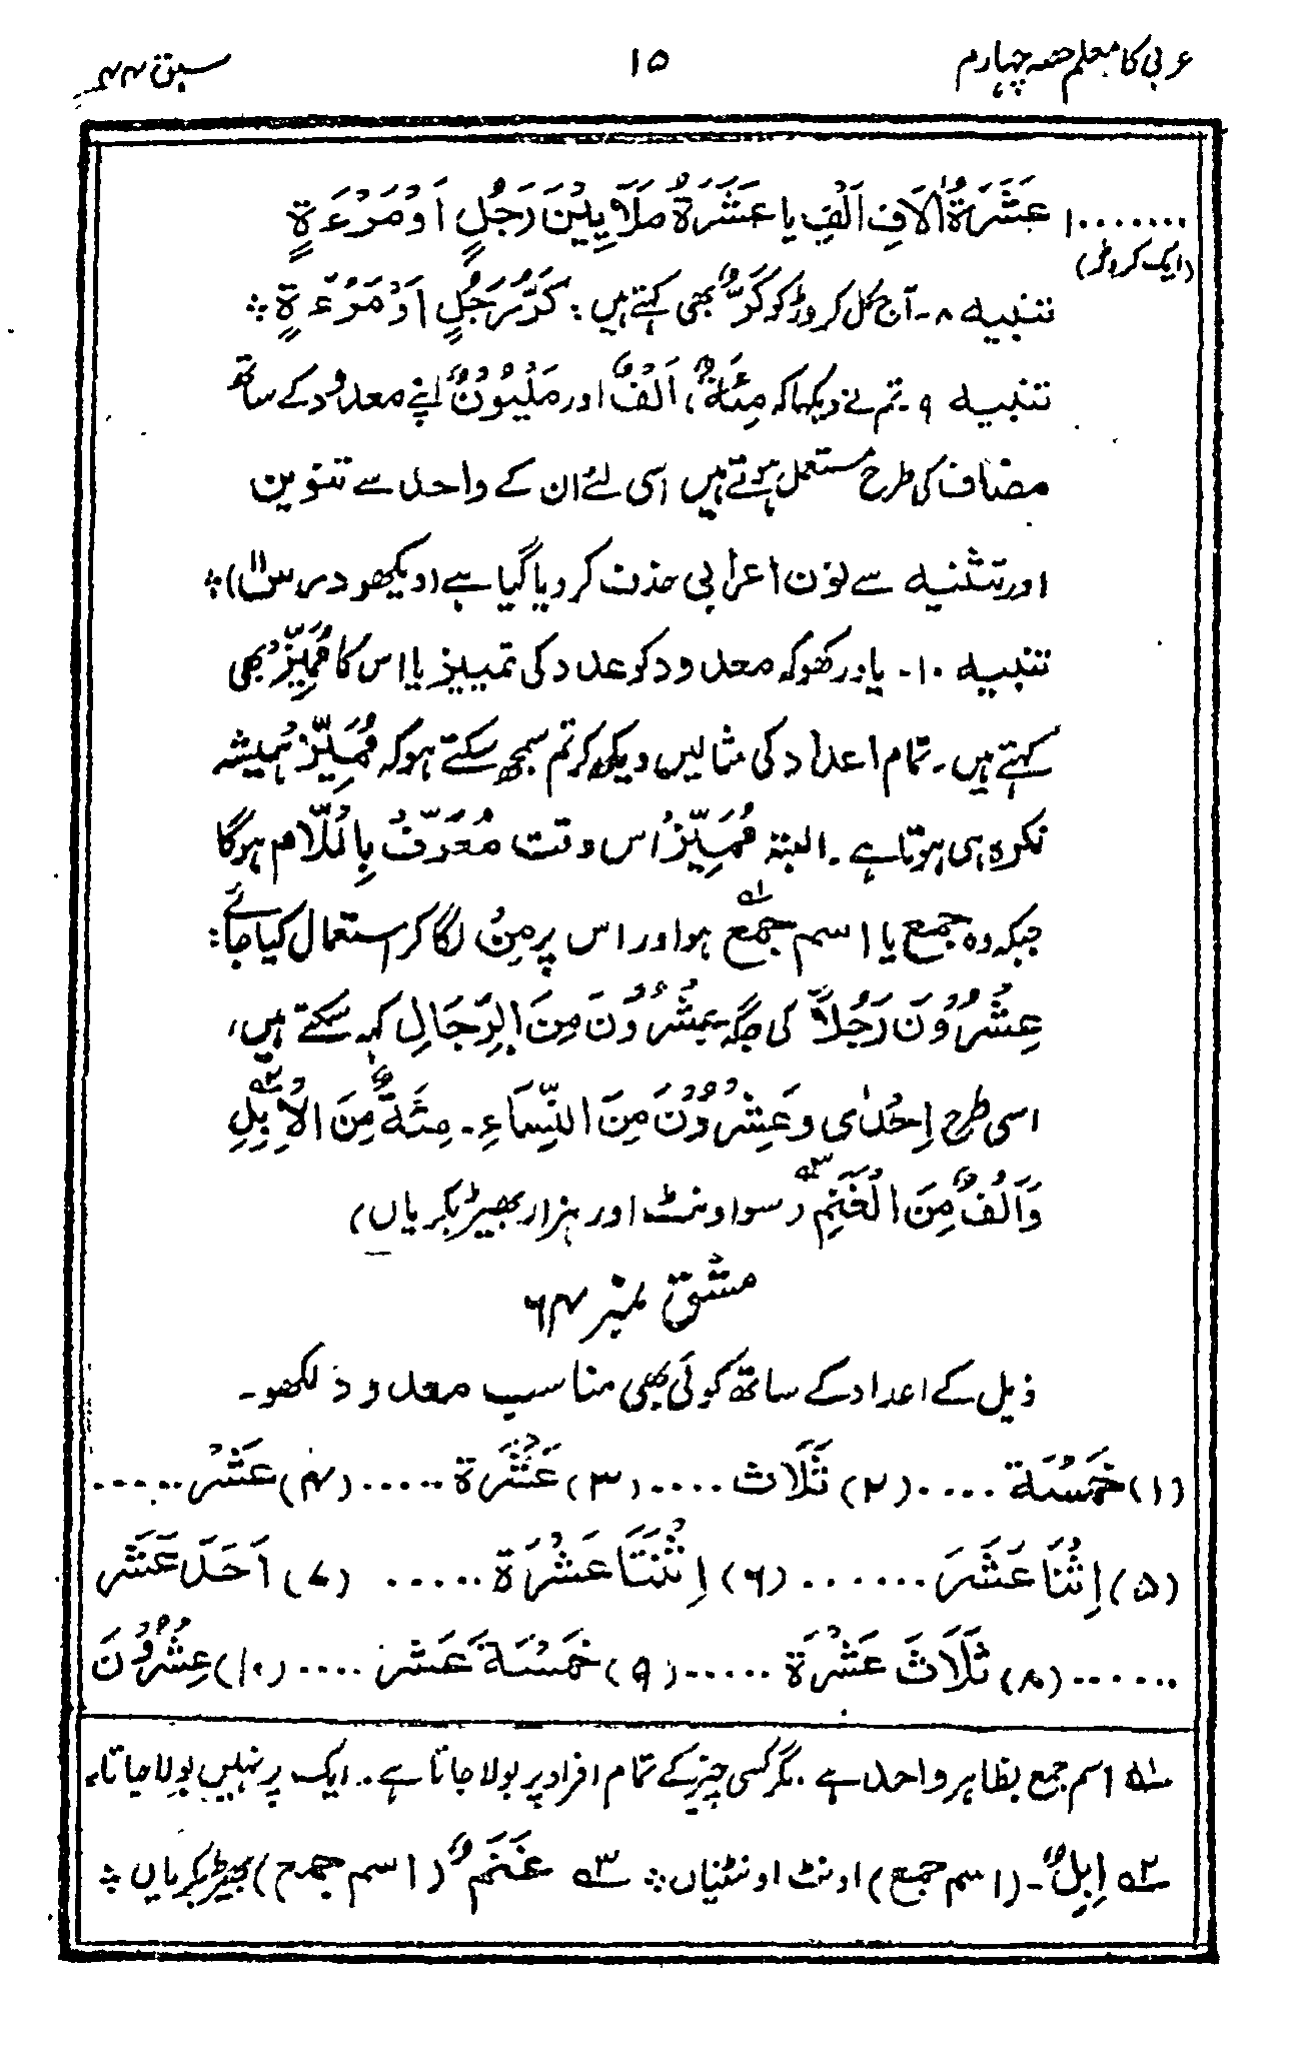 عربی کا معلم حصہ چہارم
۱۵
سبق ۴۴
۱۰۰۰۰۰۰۰ عَشَرَةُ اٰلَافِ اَلْفِ یا عَشَرَةُ مَلَایِیْنَ رَجُلٍ اَوْ مَرْءَةٍ
(ایک کروڑ)
تنبیہ ۸۔ آج کل کروڑ کو کَرٌّ بھی کہتے ہیں: کَرُّ رَجُلٍ اَوْ مَرْءَةٍ ؞
تنبیہ ۹۔ تم نے دیکھا کہ مِئَةٌ، اَلْفٌ اور مَلْیُوْنٌ اپنے معدود کے ساتھ
مضاف کی طرح مستعمل ہوتے ہیں اسی لئے ان کے واحد سے تنوین
اور تثنیہ سے نون اعرابی حذف کر دیا گیا ہے (دیکھو درس ۱۱) ؞
تنبیہ ۱۰۔ یاد رکھو کہ معدود کو عدد کی تمییز یا اس کا مُمَیِّزْ بھی
کہتے ہیں۔ تمام اعداد کی مثالیں دیکھ کر تم سمجھ سکتے ہو کہ مُمَیِّزْ ہمیشہ
نکرہ ہی ہوتا ہے۔ البتہ مُمَیِّزْ اس وقت مُعَرَّفْ بِاللَّام ہوگا
جبکہ وہ جمع یا اسم جمع ۱؎ ہو اور اس پر مِنْ لگا کر استعمال کیا جائے:
عِشْرُوْنَ رَجُلاً کی جگہ عِشْرُوْنَ مِنَ الرِّجَالِ کہہ سکتے ہیں،
اسی طرح اِحْدٰی وَعِشْرُوْنَ مِنَ النِّسَاءِ۔ مِئَةٌ مِنَ الْاِبِلِ ۲؎
وَاَلْفٌ مِنَ الْغَنَمِ ۳؎ (سو اونٹ اور ہزار بھیڑ بکریاں)
مشق نمبر ۶۴
ذیل کے اعداد کے ساتھ کوئی بھی مناسب معدود لکھو۔
(۱) خَمْسَة ..... (۲) ثَلَاث ..... (۳) عَشْرَة ..... (۴) عَشْر .....
(۵) اِثْنَا عَشَرَ ...... (۶) اِثْنَتَا عَشْرَة ..... (۷) اَحَدَ عَشَر
...... (۸) ثَلَاثَ عَشْرَة ..... (۹) خَمْسَةَ عَشَر .... (۱۰) عِشْرُوْنَ
۱؎ اسم جمع بظاہر واحد ہے۔ مگر کسی چیز کے تمام افراد پر بولا جاتا ہے۔ ایک پر نہیں بولا جاتا۔
۲؎ اِبِلٌ۔ (اسم جمع) اونٹ اونٹنیاں ؞ ۳؎ غَنَمٌ (اسم جمع) بھیڑ بکریاں ؞